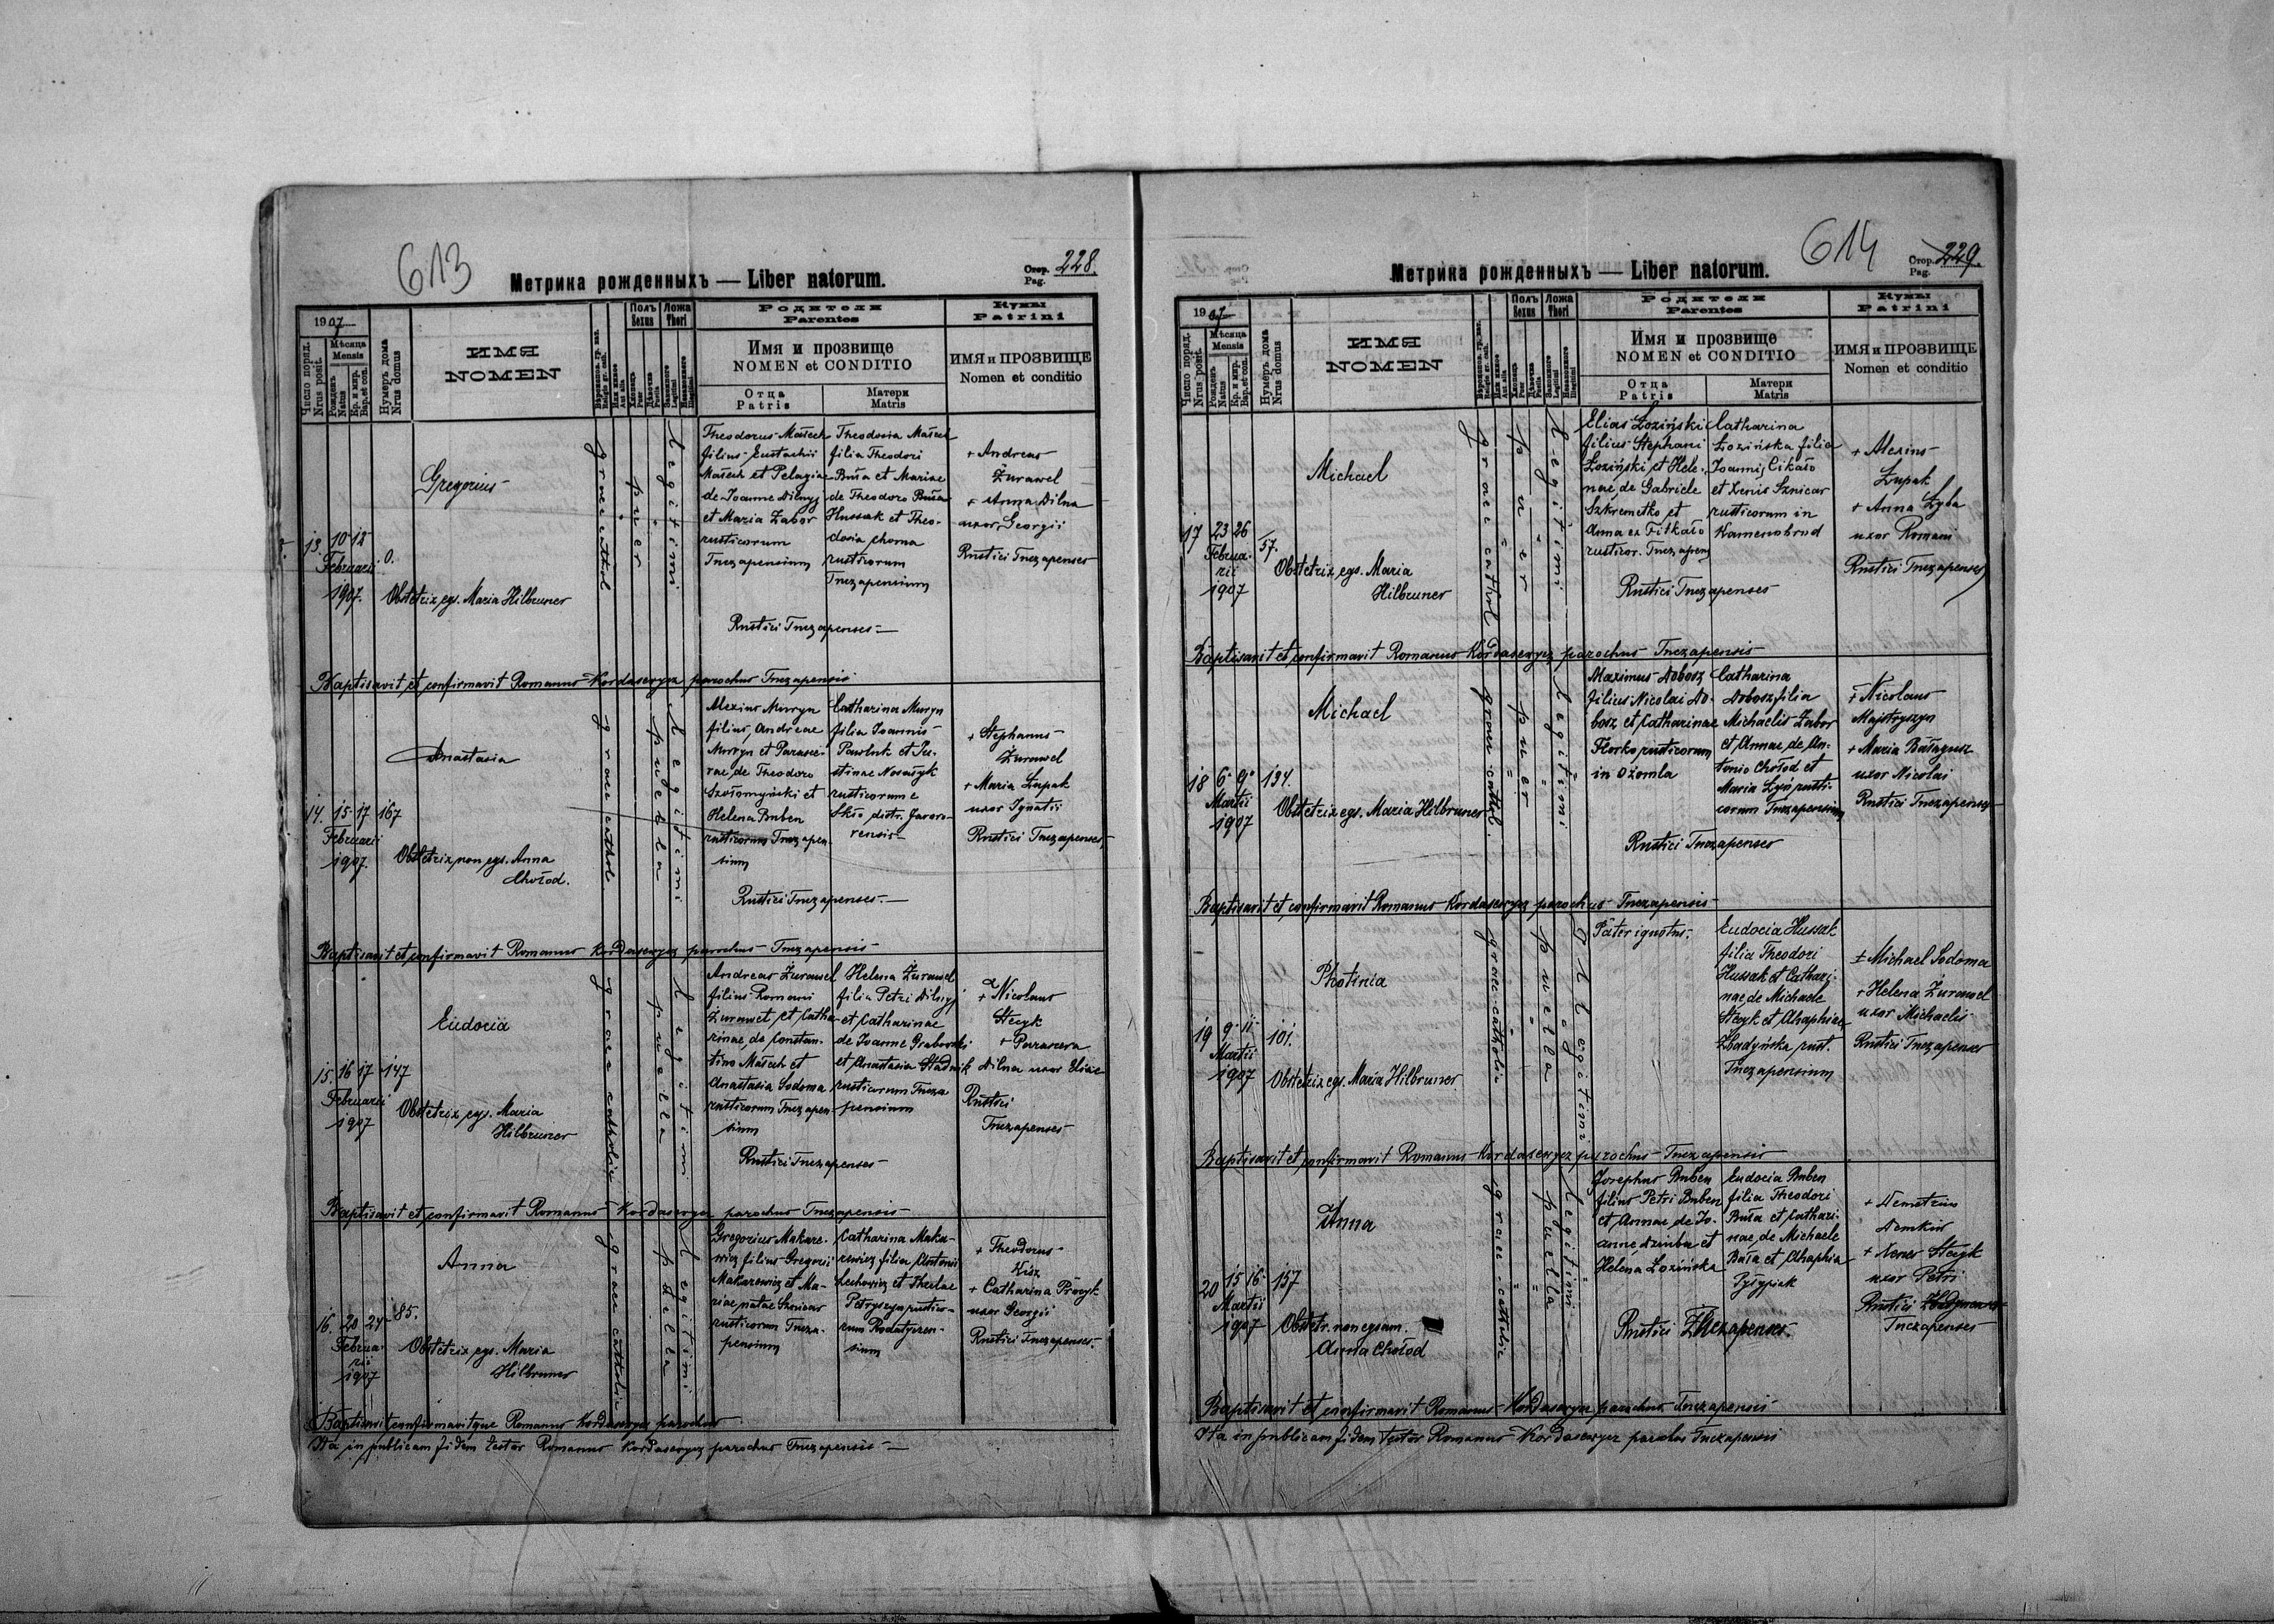 613
Метрика рожденныхъ — Liber natorum.
Стор. 228.
Pag.
1907
Число поряд.
Nrus posit.
Мѣсяца
Mensis
Рожденъ
Natus
Кр. и мир.
Bap. et con.
Нумеръ дома
Nrus domus
ИМЯ
NOMEN
Полъ
Sexus
Ложа
Thori
Родители
Parentes
Имя и прозвище
NOMEN et CONDITIO
Отца
Patris
Матери
Matris
Кумы
Patrini
ИМЯ и ПРОЗВИЩЕ
Nomen et conditio
13. 10 12
Februarii
1907.
0.
Gregorius
Obstetrix egs. Maria Hilbruner
graeci cathol
puer
legitimi
Theodorus Małech
filius Eustachii
Małech et Pelagiae
de Joanne Dilnyj
et Maria Zabor
rusticorum
Tuczapensium
Theodosia Małech
filia Theodori
Buła et Mariae
de Theodoro Buła
Hussak et Theo-
dosia Chorna
rusticorum
Tuczapensium
Rustici Tuczapenses
+ Andreas
Żurawel
+ Anna Dilna
uxor Georgii
Rustici Tuczapenses
Baptisavit et confirmavit Romanus Kordasewycz parochus Tuczapensis
14. 15 17 167
Februarii
1907.
Anastasia
Obstetrix non egs. Anna
Chołod.
graeci cathol
puella
legitimi
Alexius Muryn
filius Andreae
Muryn et Parasce-
vae, de Theodoro
Szołomyński et
Helena Buben
rusticorum Tuczapen
sium
Catharina Muryn
filia Joannis
Pawluk et Ju-
stinae Nosałyk
rusticorum e
Skło, distr. Javoro-
rensis
Rustici Tuczapenses.
+ Stephanus
Żurawel
+ Maria Łupak
uxor Ignatii
Rustici Tuczapenses
Baptisavit et confirmavit Romanus Kordasewycz parochus Tuczapensis
15. 16 17 147
Februarii
1907
Eudocia
Obstetrix egs. Maria
Hilbruner
graeci catholici
puella
legitimi
Andreas Żurawel
filius Romani
Żurawel et Catha-
rinae, de Constan-
tino Małech et
Anastasia Sodoma
rusticorum Tuczapen-
sium
Helena Żurawel
filia Petri Dilnyj
et Catharinae
de Joanne Grabowski
et Anastasia Stadnik
rusticorum Tucza
pensium
Rustici Tuczapenses
+ Nicolaus
Stecyk
+ Parascera
Dilna uxor Eliae
Rustici
Tuczapenses
Baptisavit et confirmavit Romanus Kordasewycz parochus Tuczapensis
16. 20 24 85.
Februa-
rii
1907
Anna
Obstetrix egs. Maria
Hilbruner
graeci catholici
puella
legitimi
Gregorius Makare-
wicz filius Gregorii
Makarewicz et Ma-
riae natae Sznicar
rusticorum Tucza-
pensium
Catharina Maka-
rewicz filia Antonii
Lechowicz et Theclae
Petryszyn rustico-
rum Rodatyczen-
sium
+ Theodorus
Kisz
+ Catharina Procyk
uxor Georgii
Rustici Tuczapenses.
Baptisavit confirmavitque Romanus Kordasewycz parochus
Ita in publicam fidem testor Romanus Kordasewycz parochus Tuczapensis
614
Метрика рожденныхъ — Liber natorum.
Стор. 229.
Pag.
1907
Число поряд.
Nrus posit.
Мѣсяца
Mensis
Рожденъ
Natus
Кр. и мир.
Bap. et con.
Нумеръ дома
Nrus domus
ИМЯ
NOMEN
Полъ
Sexus
Ложа
Thori
Родители
Parentes
Имя и прозвище
NOMEN et CONDITIO
Отца
Patris
Матери
Matris
Кумы
Patrini
ИМЯ и ПРОЗВИЩЕ
Nomen et conditio
17 23 26 57.
Februa-
rii
1907
Michael
Obstetrix egs. Maria
Hilbruner
graeci cathol
puer
legitimi
Elias Łoziński
filius Stephani
Łoziński et Hele-
nae, de Gabriele
Szkremetko et
Anna ex Fitkało
rusticor. Tuczapens
Catharina
Łozińska filia
Joannis Cikało
et Xenis Sznicar
rusticorum in
Kamenobrod
Rustici Tuczapenses
+ Alexius
Łupak
+ Anna Łyba
uxor Romani
Rustici Tuczapenses
Baptisavit et confirmavit Romanus Kordasewycz parochus Tuczapensis
18 6. 9. 194.
Martii
1907
Michael
Obstetrix egs. Maria Hilbruner
graeci cathol.
puer
legitimi
Maximus Dobosz
filius Nicolai Do-
bosz et Catharinae
Florko rusticorum
in Ożomla
Catharina
Dobosz filia
Michaelis Zabor
et Annae, de An-
tonio Chołod et
Maria Łyń rusti-
corum Tuczapensium
Rustici Tuczapenses
+ Nicolaus
Majstryszyn
+ Maria Bałagusz
uxor Nicolai
Rustici Tuczapenses
Baptisavit et confirmavit Romanus Kordasewycz parochus Tuczapensis
19 9. 11. 101.
Martii
1907
Photinia
Obstetrix egs. Maria Hilbruner
graeci-catholici
puella
Illegitimi
Pater ignotus.
Eudocia Hussak
filia Theodori
Hussak et Cathari-
nae, de Michaele
Stecyk et Ahaphia
Zbadyńska rust.
Tuczapensium
+ Michael Sodoma
+ Helena Żurawel
uxor Michaelis
Rustici Tuczapenses
Baptisavit et confirmavit Romanus Kordasewycz parochus Tuczapensis
20 15 16. 157
Martii
1907
Anna
Obstetr. non egsam.
Anna Chołod
graeci-catholici
puella
legitimi
Josephus Buben
filius Petri Buben
et Annae, de Jo-
anne Dziuba et
Helena Łozińska
Eudocia Buben
filia Theodori
Buła et Cathari-
nae, de Michaele
Buła et Ahaphia
Pyłypiak
Rustici Tuczapenses.
+ Demetrius
Demkiw
+ Xenes Stecyk
uxor Petri
Rustici
Tuczapenses
Baptisavit et confirmavit Romanus Kordasewycz parochus Tuczapensis
Ita in publicam fidem testor Romanus Kordasewycz parochus Tuczapensis